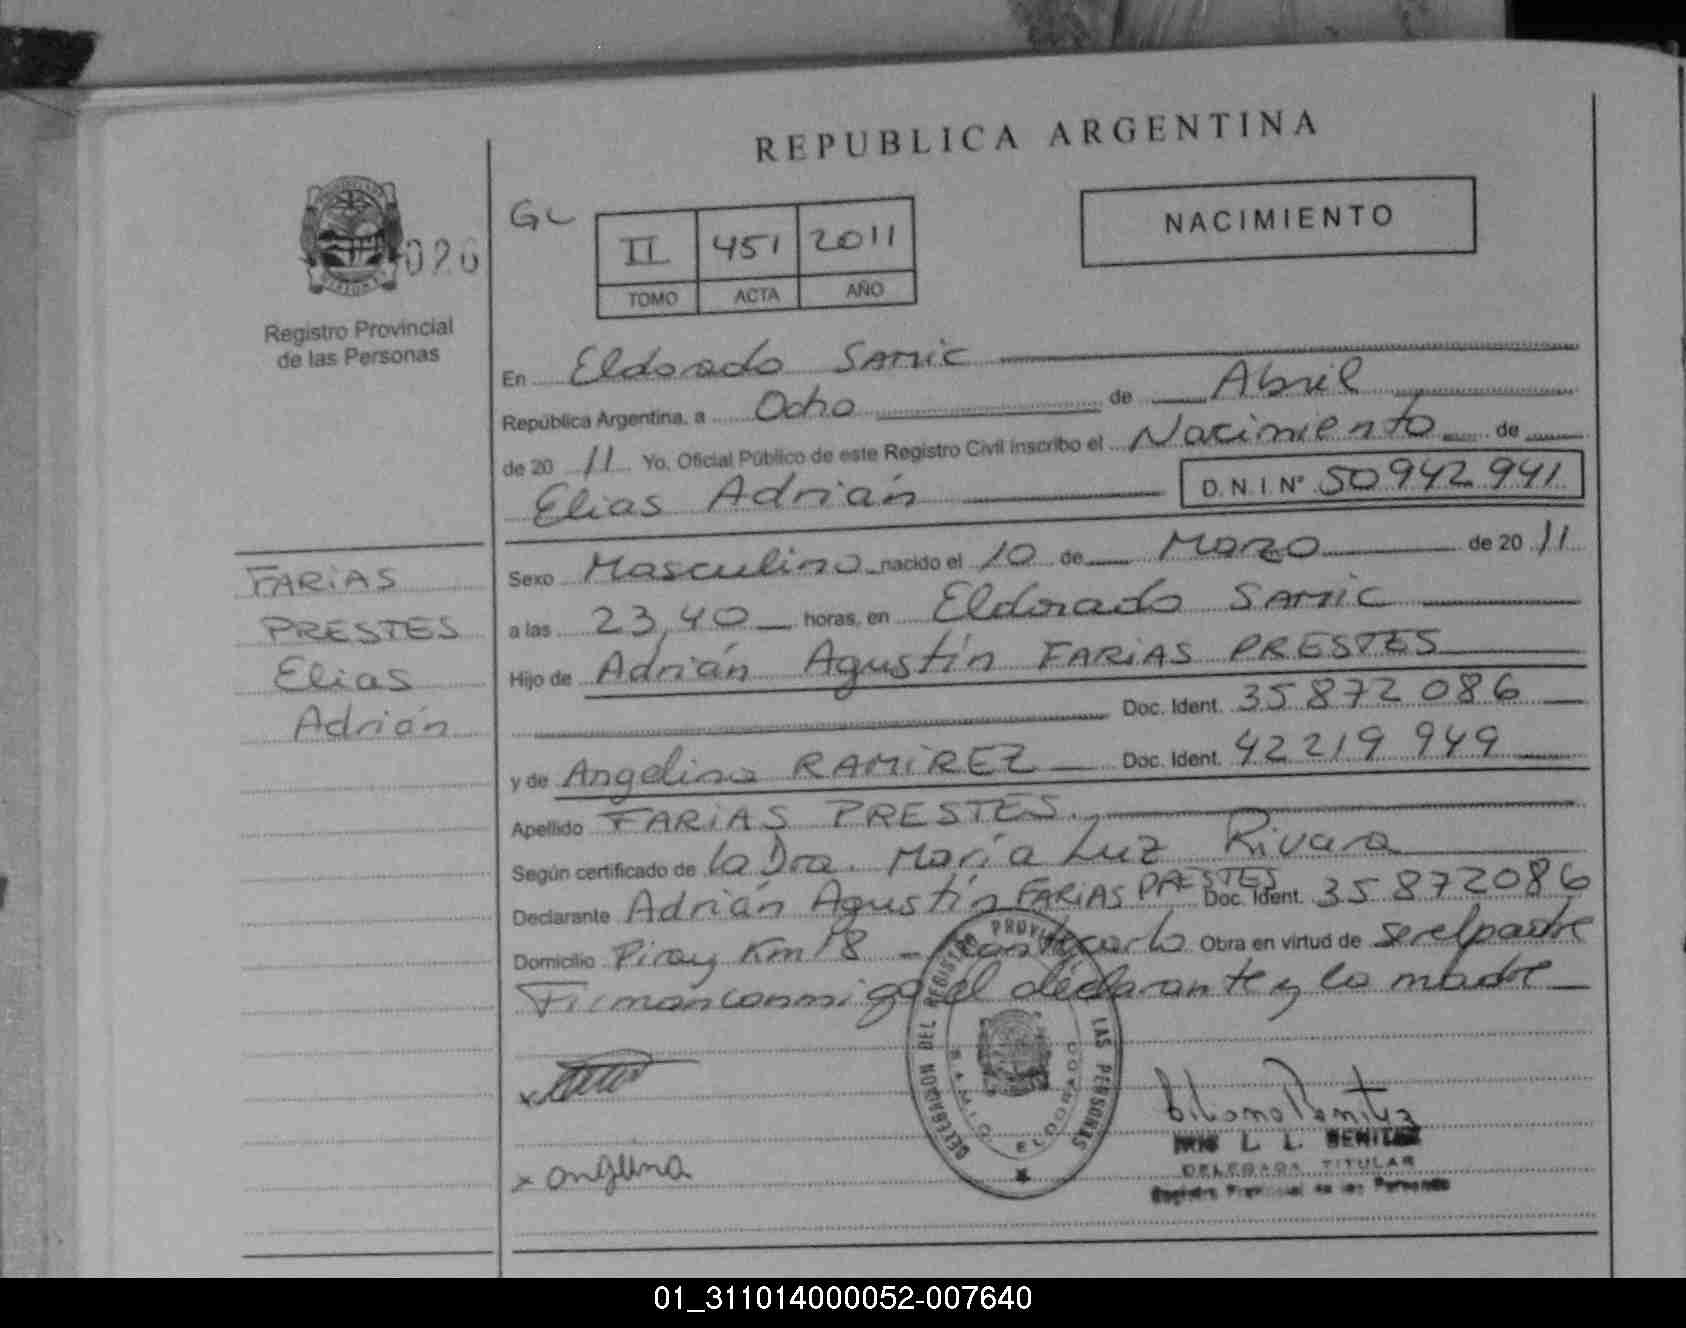 REPUBLICA ARGENTINA
026
Registro Provincial
de las Personas
GL
II 451 2011
TOMO ACTA AÑO
NACIMIENTO
En Eldorado SAMIC
República Argentina, a Ocho de Abril
de 20 11 Yo, Oficial Público de este Registro Civil inscribo el Nacimiento de
Elias Adrián D.N.I. Nº 50942941
FARiAS
PRESTES
Elias
Adrián
Sexo Masculino nacido el 10 de Marzo de 20 11
a las 23,40 horas, en Eldorado SAMIC
Hijo de Adrián Agustín FARiAS PRESTES
Doc. Ident. 35872086
y de Angelina RAMiREZ Doc. Ident. 42219949
Apellido FARiAS PRESTES.
Según certificado de la Dra. María Luz Rivara
Declarante Adrián Agustín FARiAS PRESTES Doc. Ident. 35872086
Domicilio Piray Km 18 - Montecarlo Obra en virtud de ser el padre
Firman conmigo el declarante y la madre
DELEGACION DEL REGISTRO PROVINCIAL LAS PERSONAS
SAMIC ELDORADO
x
x angelina
L. L. BENITEZ
DELEGADA TITULAR
Registro Provincial de las Personas
01_311014000052-007640